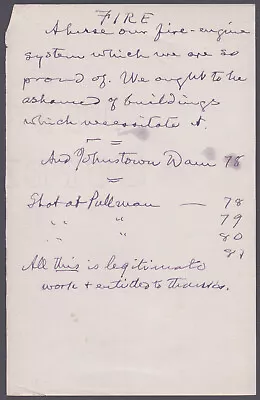 FIRE
Abuse our fire-engine
system which we are so
proud of. We ought to be
ashamed of buildings
which necessitate it.
And Johnstown Dam 78
Shot at Pullman — 78
" " 79
" " 80
All this is legitimate
work & entitled to thanks.